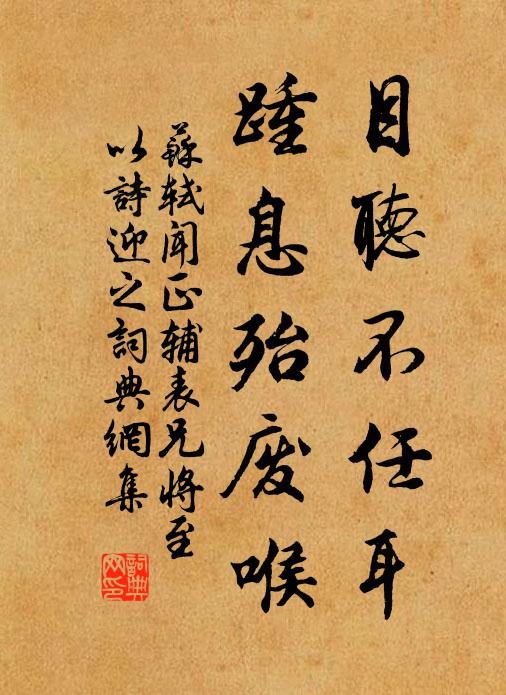 目聽不任耳
踵息殆废喉
蘇轼闻正辅表兄將至
以詩迎之詞典網集
詞典
网印